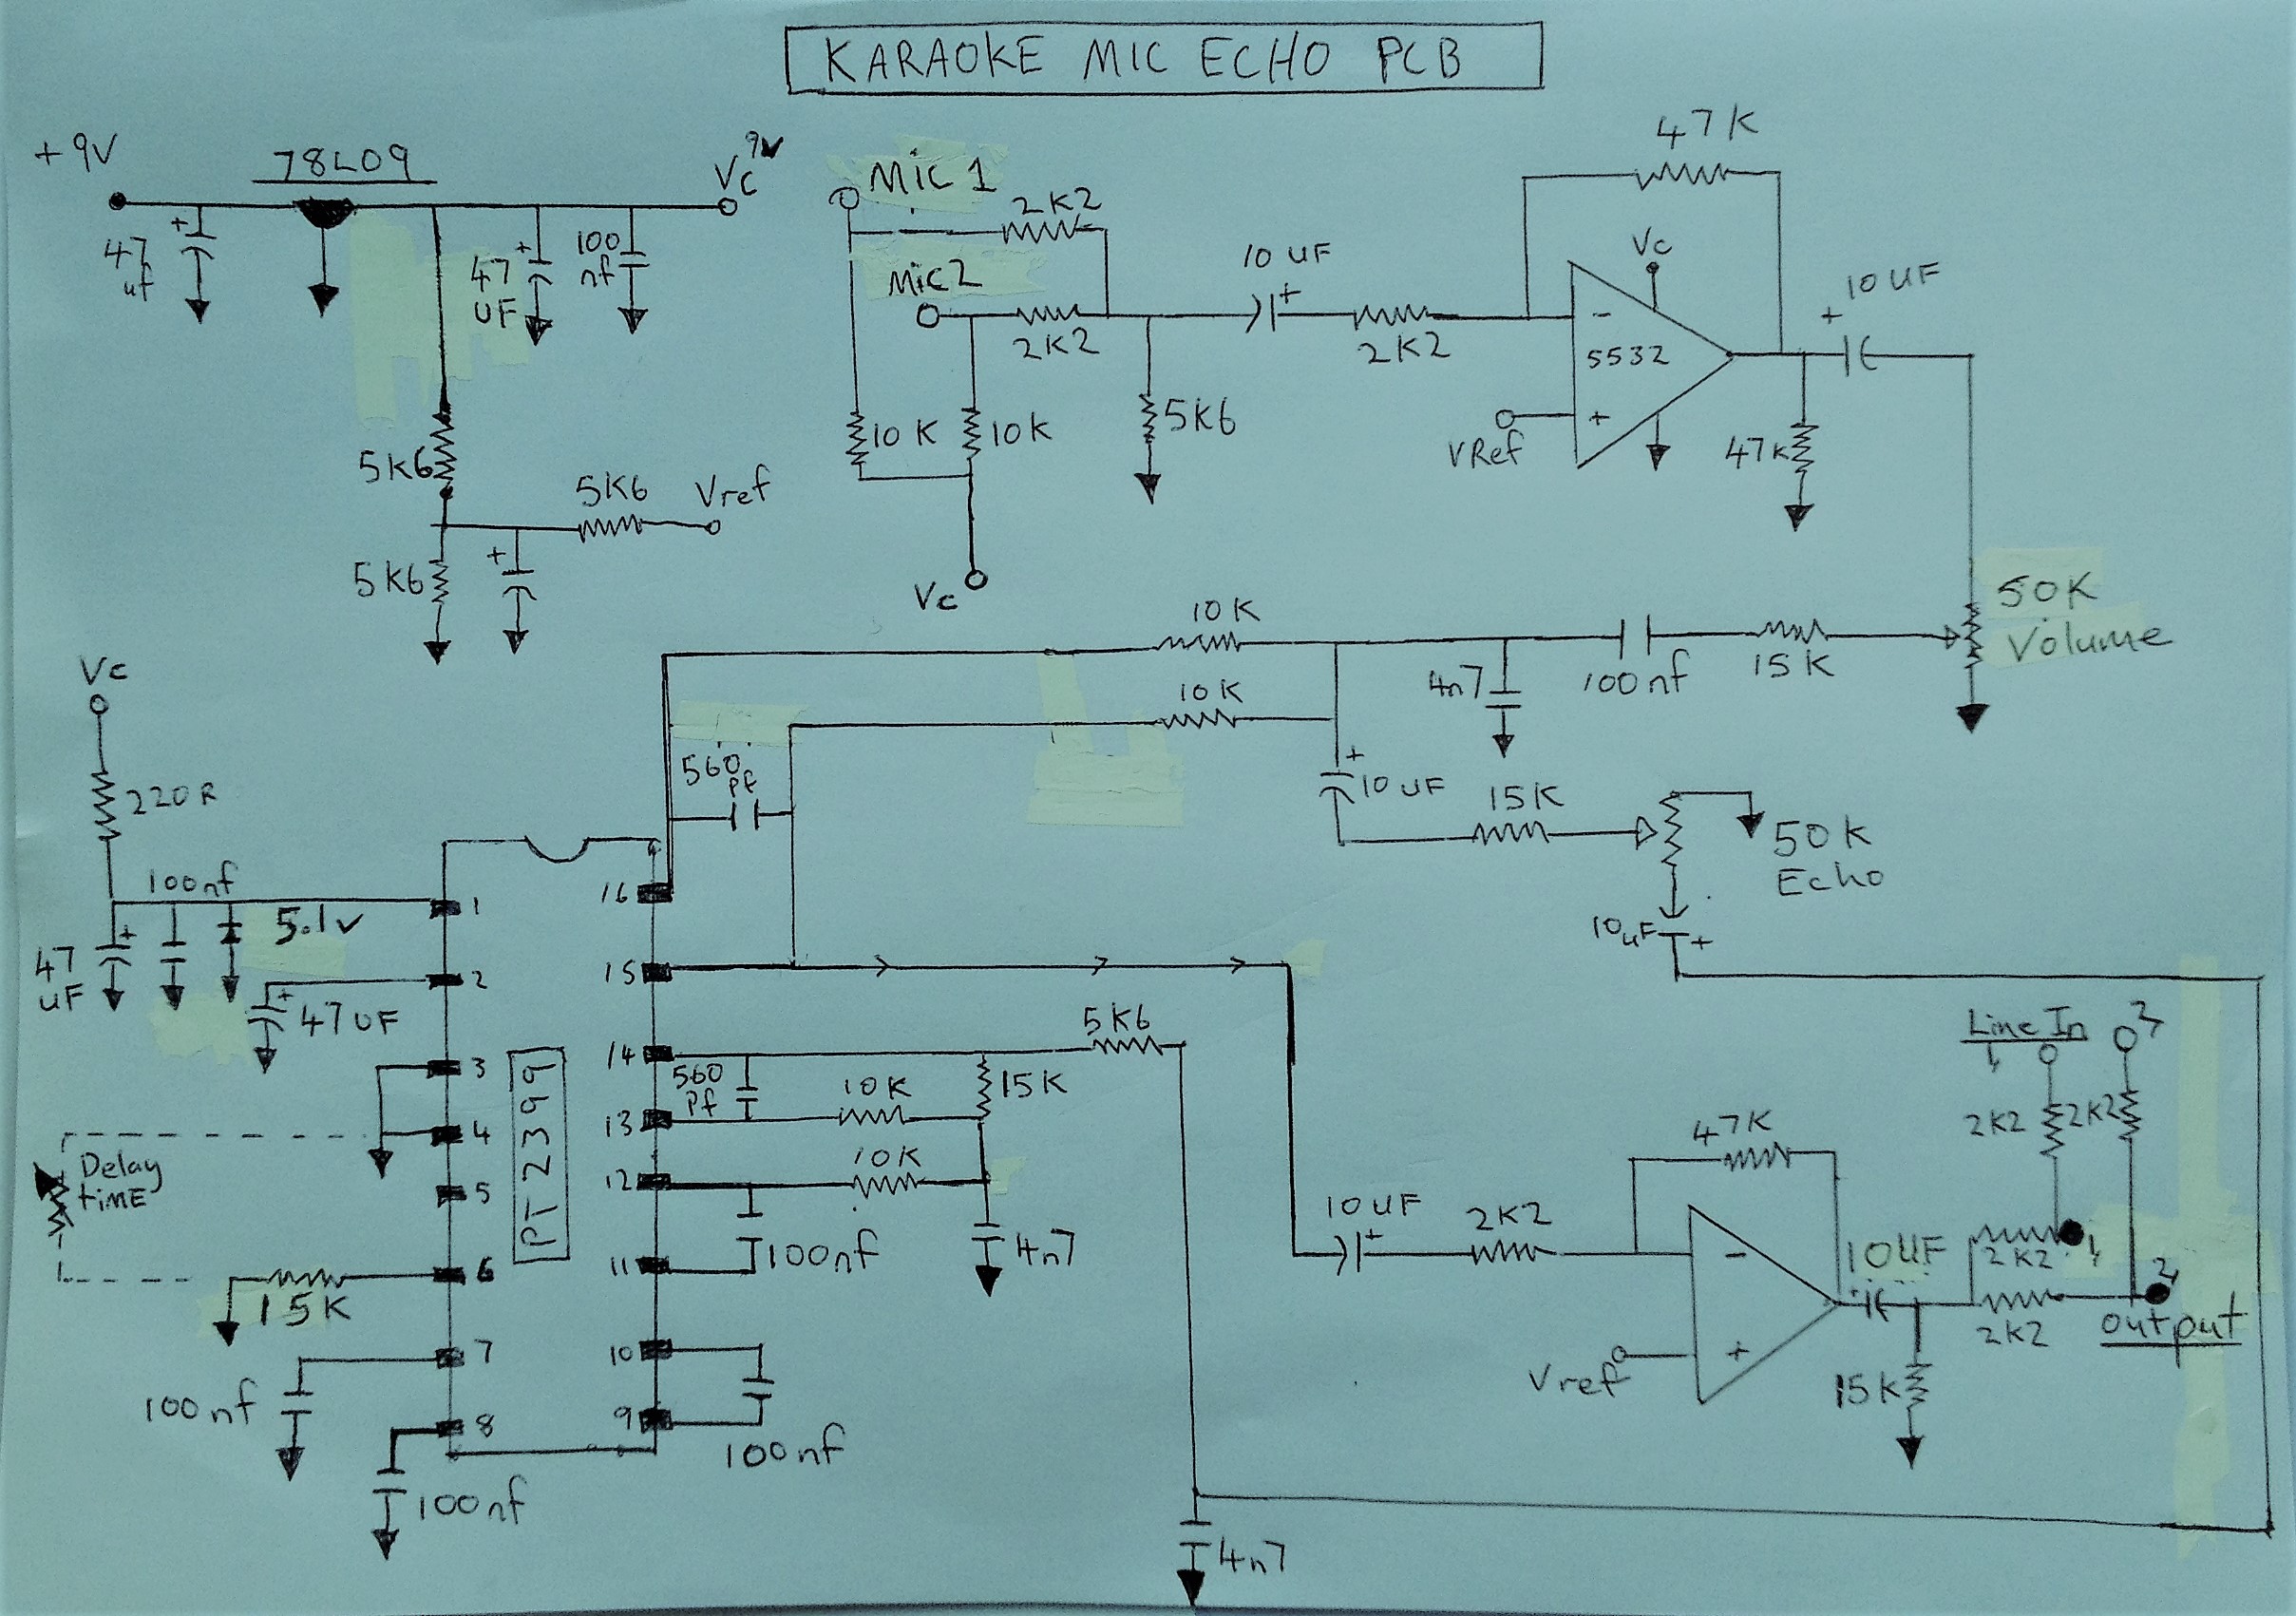 KARAOKE MIC ECHO PCB
+9V
78L09
Vc 9V
+
47
uf
+
47
UF
100
nf
5K6
5K6
Vref
5K6
+
Mic 1
2K2
Mic2
2K2
10K
10K
5K6
Vc
10 UF
+
2K2
47K
Vc
-
5532
+
VRef
+
10 UF
47K
50K
Volume
15K
100nf
4n7
10K
10K
+
10 UF
15K
50K
Echo
10uF
+
Vc
220R
100nf
5.1v
+
47
uF
+
47UF
560
Pf
1
2
3
4
5
6
7
8
PT2399
16
15
14
13
12
11
10
9
Delay
timE
15K
100nf
100nf
560
Pf
10K
15K
5K6
10K
100nf
4n7
100nf
4n7
10UF
+
2K2
47K
-
+
Vref
10UF
+
15K
Line In
1
2
2K2
2K2
2K2
1
2K2
2
output